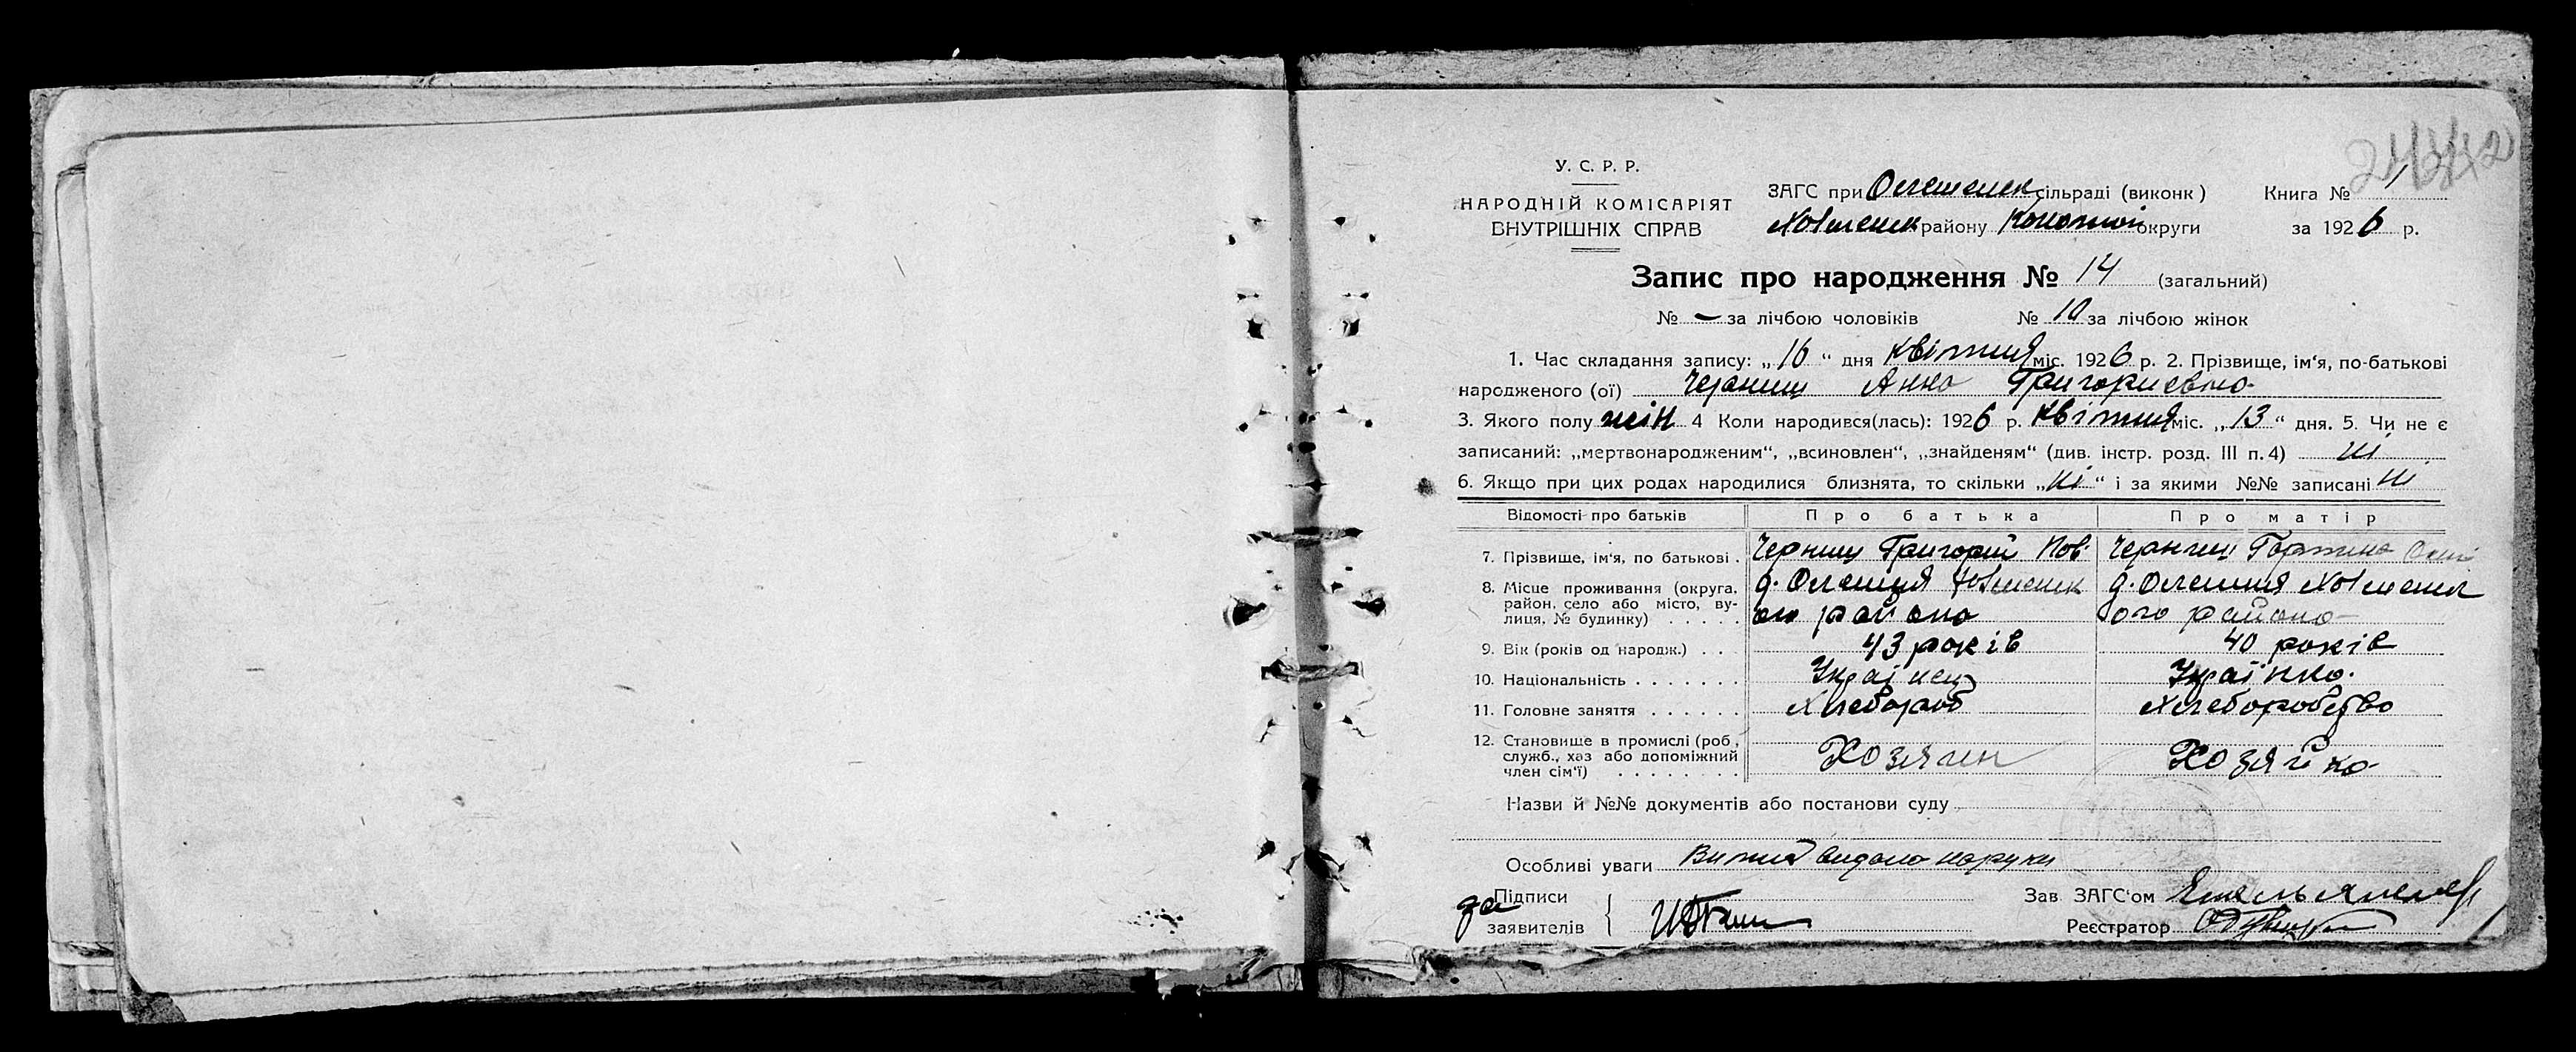 У. С. Р. Р.
НАРОДНІЙ КОМІСАРІЯТ
ВНУТРІШНІХ СПРАВ
ЗАГС при Олешенск сільраді (виконк)
Холменск району Конотоп округи
Книга № 1
за 1926 р.
Запис про народження № 14 (загальний)
№ – за лічбою чоловіків № 10 за лічбою жінок
1. Час складання запису: „16“ дня квітния міс. 1926 р. 2. Прізвище, ім‘я, по-батькові
народженого (ої) Черниш Анна Григориевна
3. Якого полу жін 4 Коли народився(лась): 1926 р. Квітния міс. „13“ дня. 5. Чи не є
записаний: „мертвонародженим“, „всиновлен“, „знайденям“ (див. інстр. розд. III п. 4) ні
6. Якщо при цих родах народилися близнята, то скільки „ні“ і за якими №№ записані ні
Відомості про батьків Про батька Про матір
7. Прізвище, ім‘я, по батькові . Черниш Григорій Пов Черниш
8. Місце проживання (округа, район, село або місто, вулиця, № будинку) . . . . . д. Олешня Холменск ого района д. Олешня Холменск ого района
9. Вік (років од народж.) . . . 43 років 40 років
10. Національність . . . . . . . Українец Українка.
11. Головне заняття . . . . . . Хлебороб Хлеборобство
12. Становище в промислі (роб., служб., хаз або допоміжний член сім‘ї) . . . . . . . . Хозяин Хозяйка
Назви й №№ документів або постанови суду
Особливі уваги видано наруки
за Підписи
заявителів
Зав ЗАГС‘ом
Реєстратор